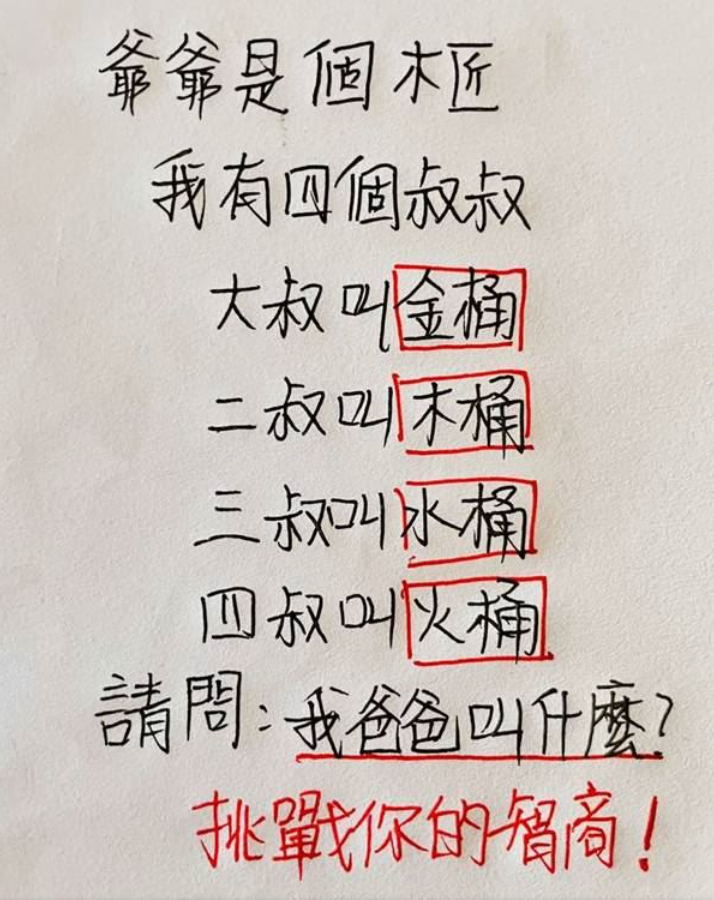 爺爺是個木匠
我有四個叔叔
大叔叫金桶
二叔叫木桶
三叔叫水桶
四叔叫火桶
請問:我爸爸叫什麼?
挑戰你的智商!